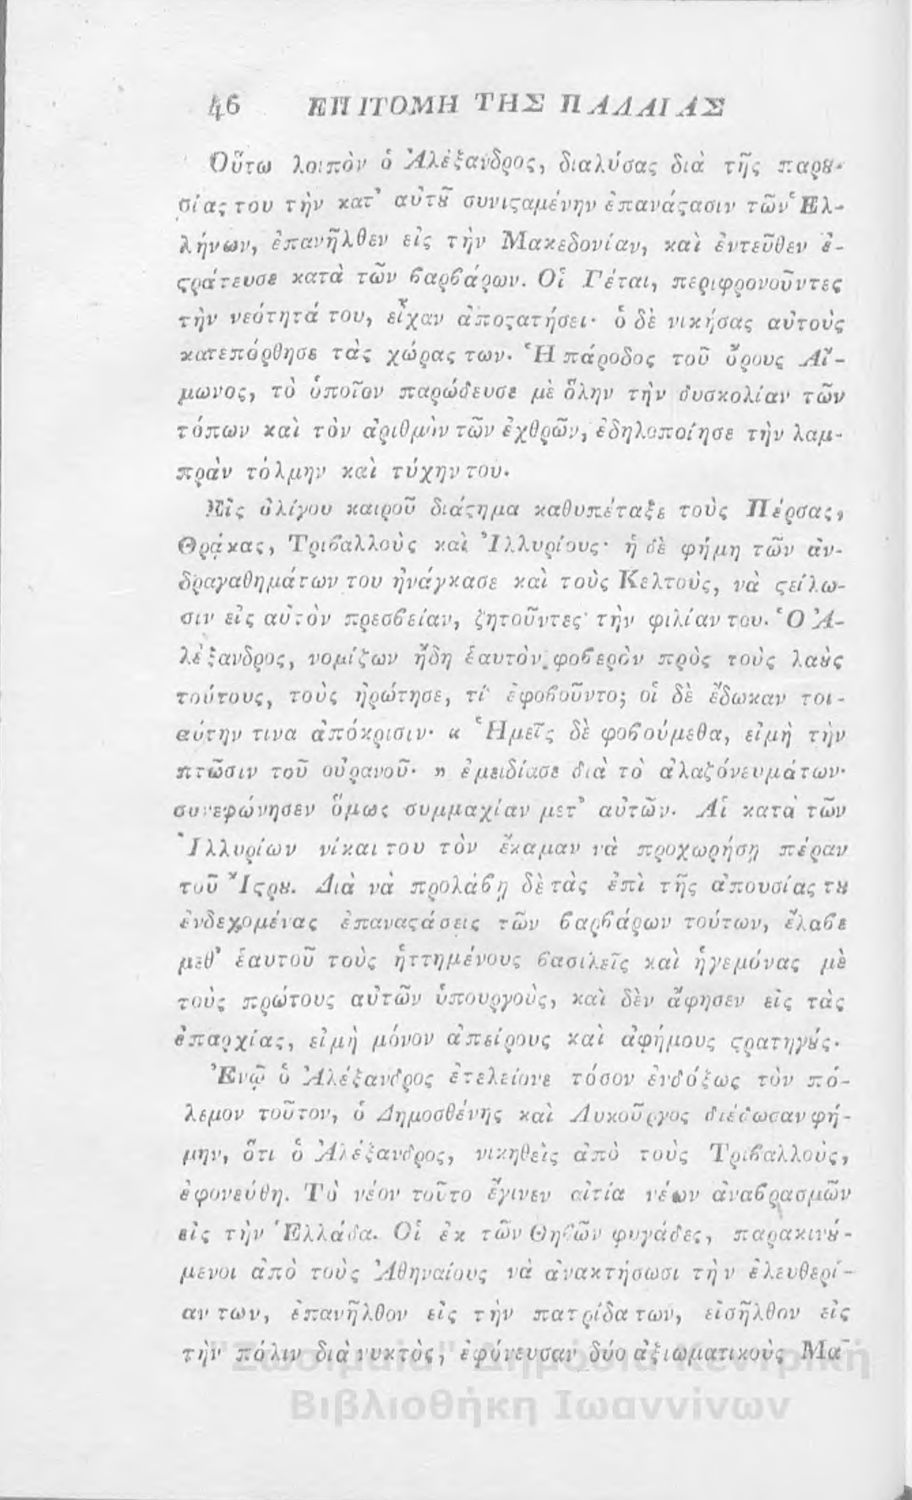 46 ΕΠΙΤΟΜΗ ΤΗΣ ΠΑΛΑΙΑΣ
Οὕτω λοιπὸν ὁ Ἀλέξανδρος, διαλύσας διὰ τῆς παρȣ-
σίας του τὴν κατ᾽ αὐτȣ͂ συνιςαμένην ἐπανάςασιν τῶν Ἑλ-
λήνων, ἐπανῆλθεν εἰς τὴν Μακεδονίαν, καὶ ἐντεῦθεν ἐ-
ςράτευσε κατὰ τῶν βαρβάρων. Οἱ Γέται, περιφρονοῦντες
τὴν νεότητά του, εἶχαν ἀποςατήσει· ὁ δὲ νικήσας αὐτοὺς
κατεπόρθησε τὰς χώρας των. Ἡ πάροδος τοῦ ὄρους Αἵ-
μωνος, τὸ ὁποῖον παρώδευσε μὲ ὅλην τὴν δυσκολίαν τῶν
τόπων καὶ τὸν ἀριθμὸν τῶν ἐχθρῶν, ἐδηλοποίησε τὴν λαμ-
πρὰν τόλμην καὶ τύχην του.
Εἰς ὀλίγου καιροῦ διάςημα καθυπέταξε τοὺς Πέρσας,
Θρᾷκας, Τριβαλλοὺς καὶ Ἰλλυρίους· ἡ δὲ φήμη τῶν ἀν-
δραγαθημάτων του ἠνάγκασε καὶ τοὺς Κελτοὺς, νὰ ςείλω-
σιν εἰς αὐτὸν πρεσβείαν, ζητοῦντες τὴν φιλίαν του. Ὁ Ἀ-
λέξανδρος, νομίζων ἤδη ἑαυτὸν φοβερὸν πρὸς τοὺς λαȣ̀ς
τούτους, τοὺς ἠρώτησε, τί ἐφοβοῦντο; οἱ δὲ ἔδωκαν τοι-
αύτην τινα ἀπόκρισιν· « Ἡμεῖς δὲ φοβούμεθα, εἰμὴ τὴν
πτῶσιν τοῦ οὐρανοῦ· » ἐμειδίασε διὰ τὸ ἀλαζόνευμάτων·
συνεφώνησεν ὅμως συμμαχίαν μετ᾽ αὐτῶν. Αἱ κατὰ τῶν
Ἰλλυρίων νίκαι του τὸν ἔκαμαν νὰ προχωρήσῃ πέραν
τοῦ Ἴςρȣ. Διὰ νὰ προλάβῃ δὲ τὰς ἐπὶ τῆς ἀπουσίας τȣ
ἐνδεχομένας ἐπαναςάσεις τῶν βαρβάρων τούτων, ἔλαβε
μεθ᾽ ἑαυτοῦ τοὺς ἡττημένους βασιλεῖς καὶ ἡγεμόνας μὲ
τοὺς πρώτους αὐτῶν ὑπουργοὺς, καὶ δὲν ἄφησεν εἰς τὰς
ἐπαρχίας, εἰμὴ μόνον ἀπείρους καὶ ἀφήμους ςρατηγȣ́ς.
Ἐνῷ ὁ Ἀλέξανδρος ἐτελείονε τόσον ἐνδόξως τὸν πό-
λεμον τοῦτον, ὁ Δημοσθένης καὶ Λυκοῦργος διέδωσαν φή-
μην, ὅτι ὁ Ἀλέξανδρος, νικηθεὶς ἀπὸ τοὺς Τριβαλλοὺς,
ἐφονεύθη. Τὸ νέον τοῦτο ἔγινεν αἰτία νέων ἀναβρασμῶν
εἰς τὴν Ἑλλάδα. Οἱ ἐκ τῶν Θηβῶν φυγάδες, παρακινȣ́-
μενοι ἀπὸ τοὺς Ἀθηναίους νὰ ἀνακτήσωσι τὴν ἐλευθερί-
αν των, ἐπανῆλθον εἰς τὴν πατρίδα των, εἰσῆλθον εἰς
τὴν πόλιν διὰ νυκτὸς, ἐφόνευσαν δύο ἀξιωματικοὺς Μα-
"Ζωσιμαία" Δημόσια Κεντρική
Βιβλιοθήκη Ιωαννίνων